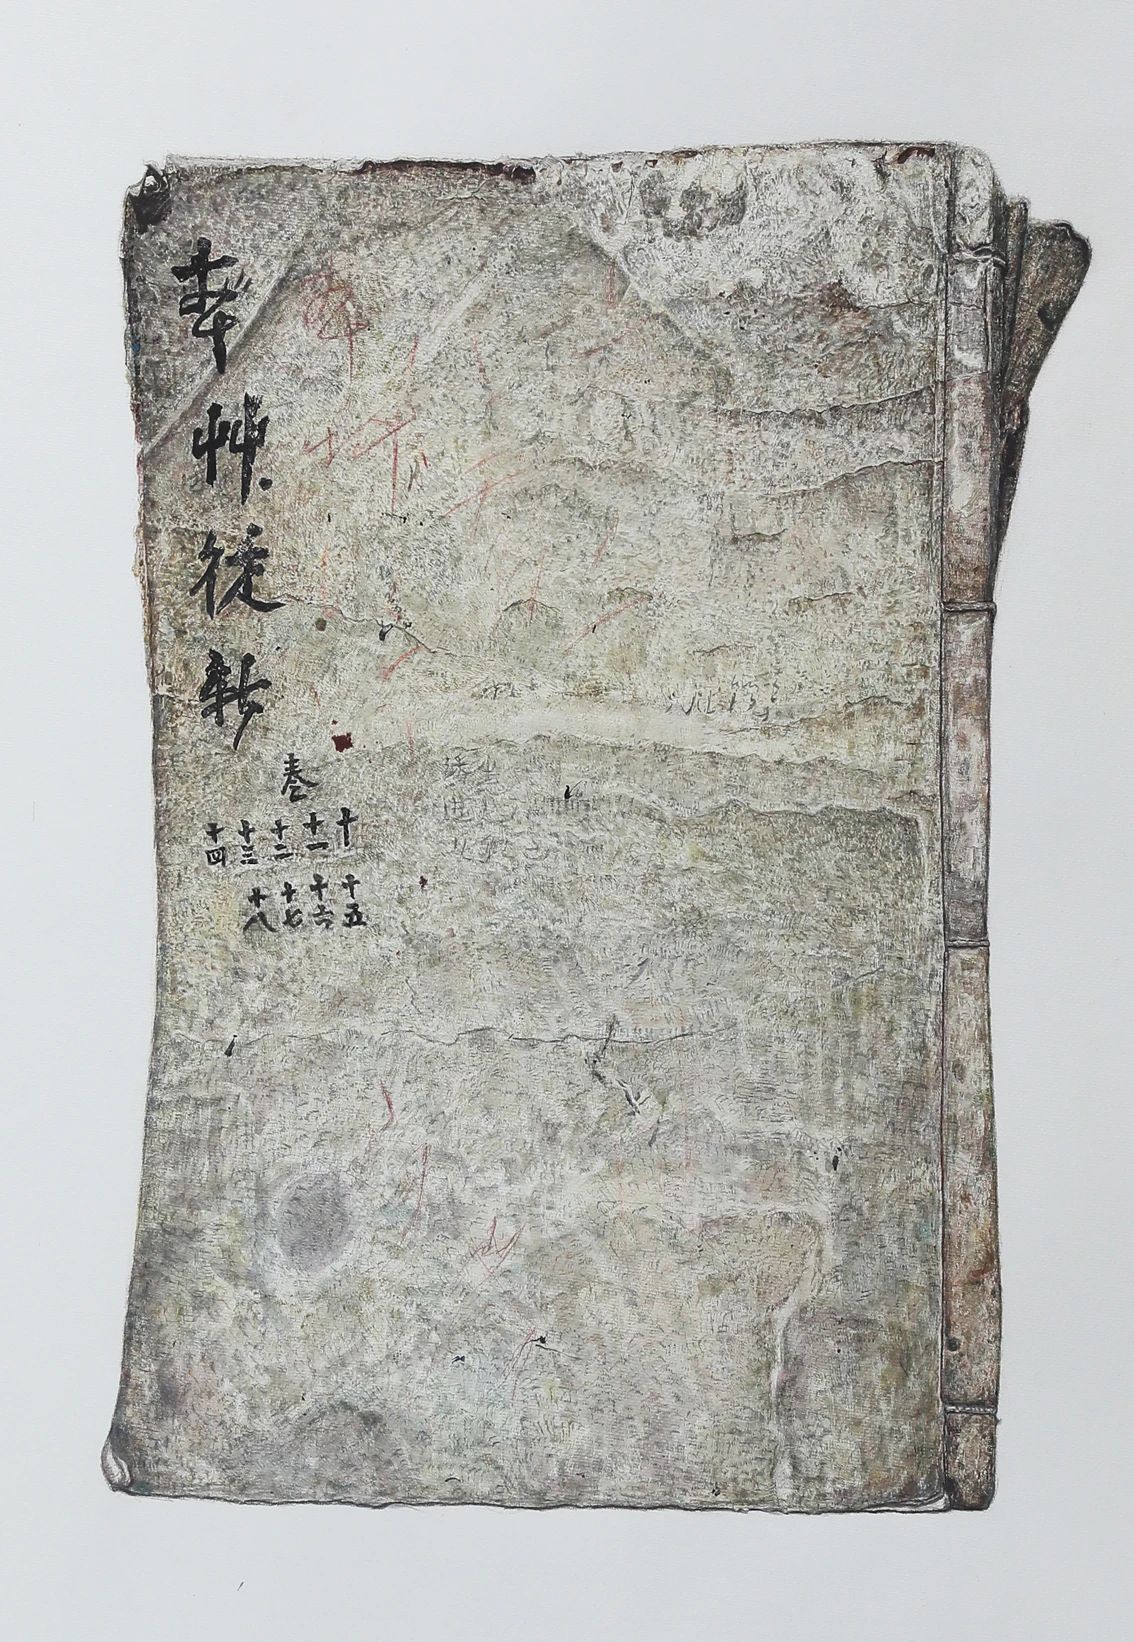 本艸從新
卷
十 十一 十二 十三 十四
十五 十六 十七 十八